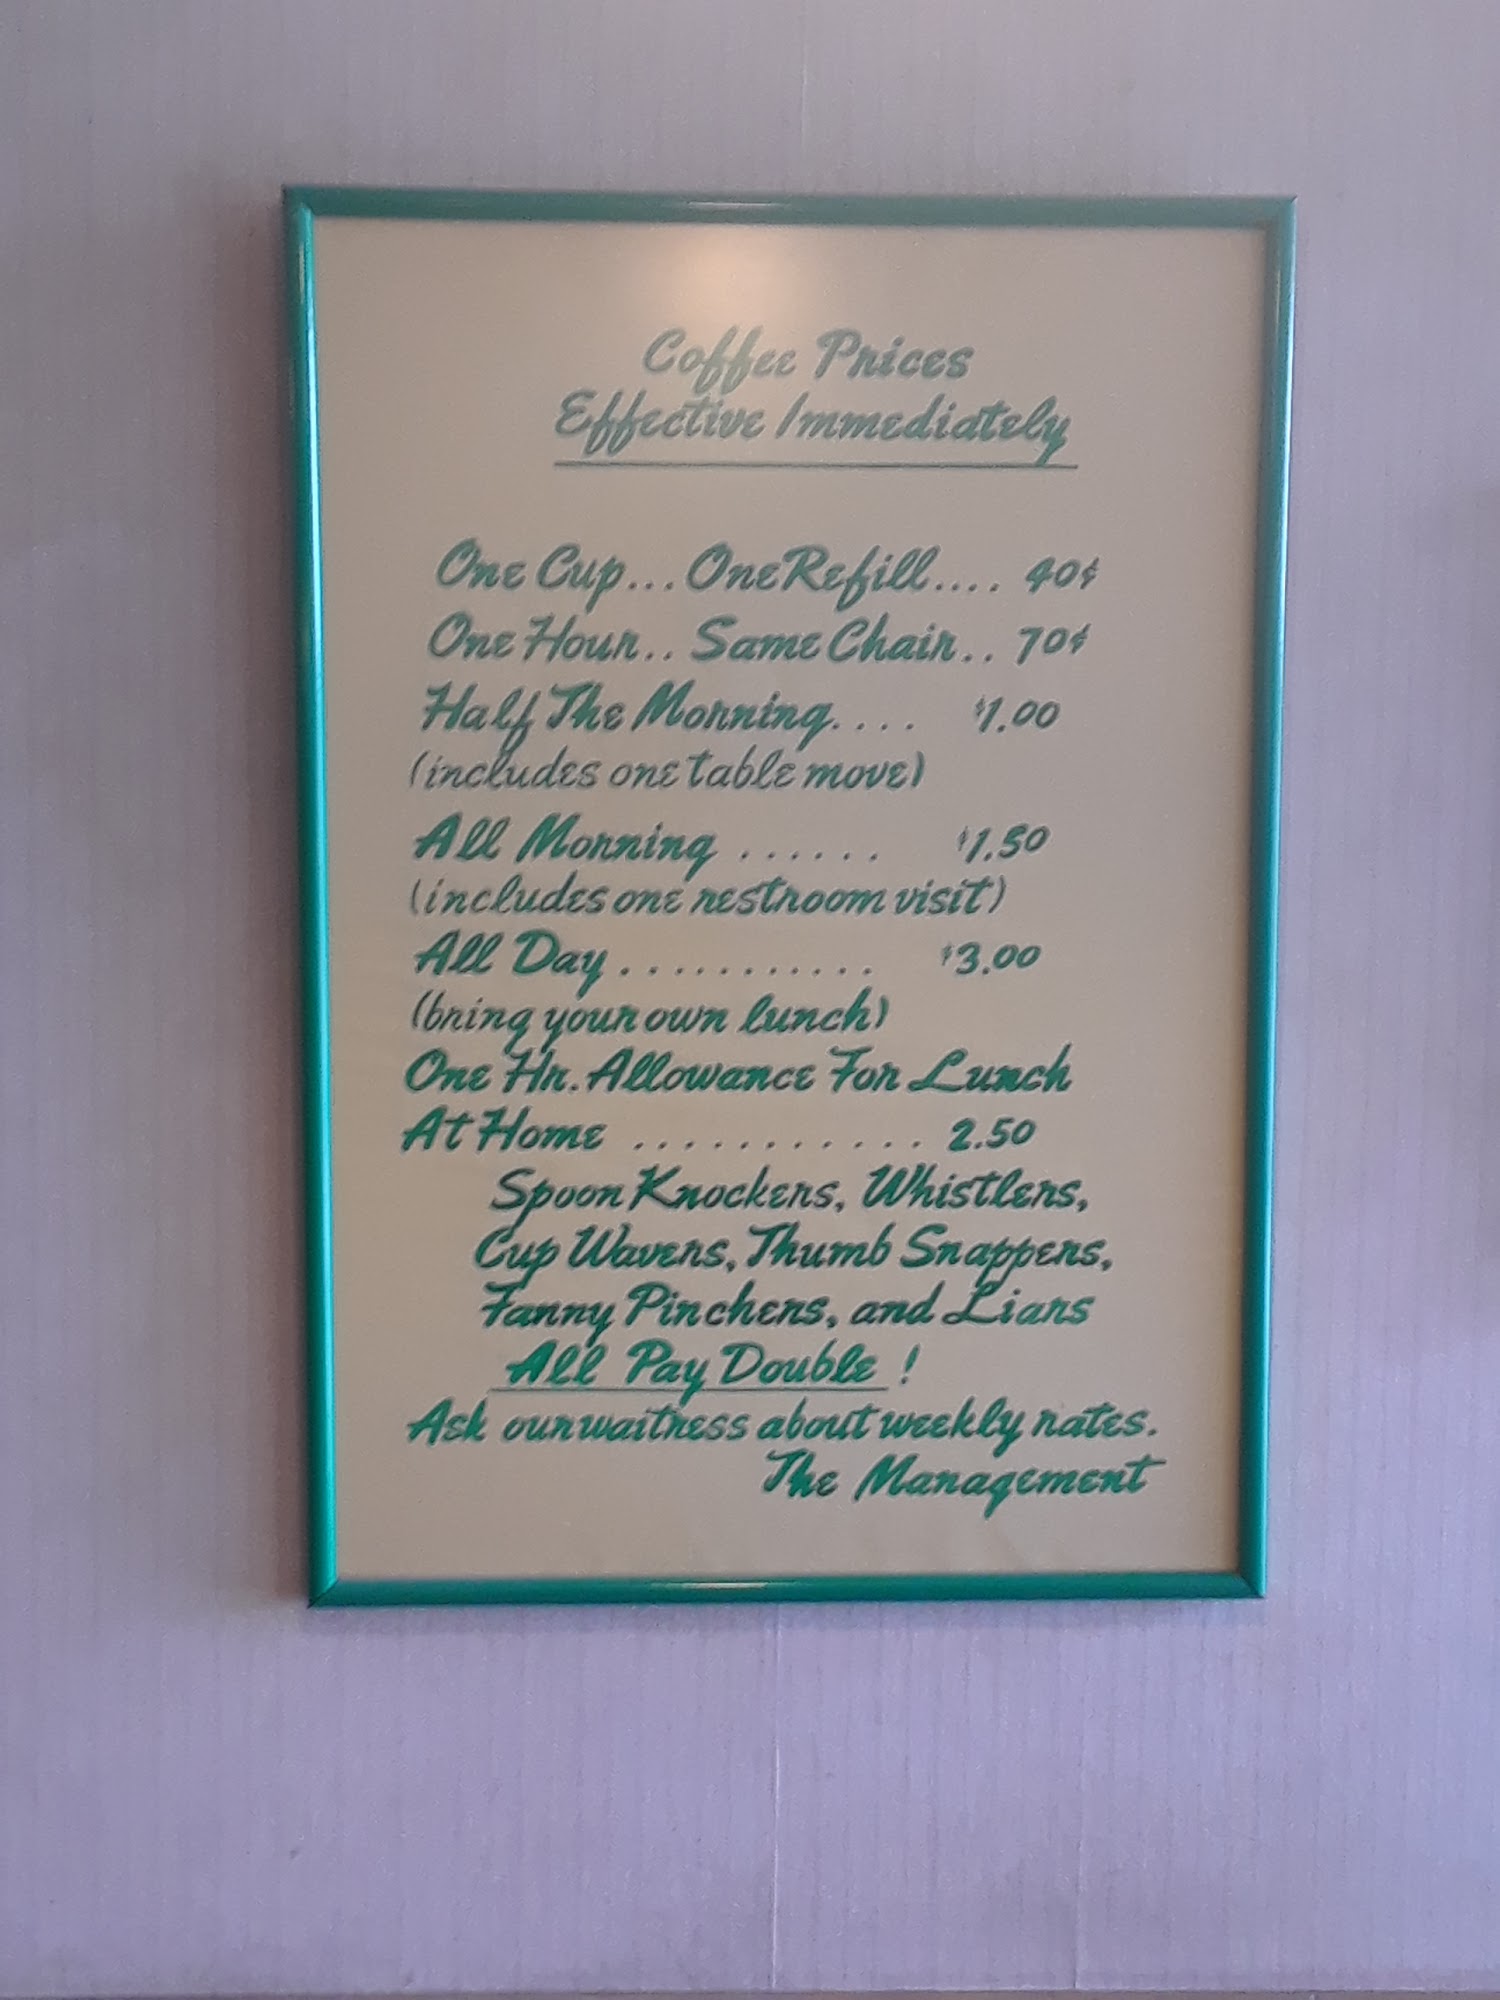 Coffee Prices
Effective Immediately
One Cup... One Refill.... 40¢
One Hour.. Same Chair.. 70¢
Half The Morning.... $1.00
(includes one table move)
All Morning ...... $1.50
(includes one restroom visit)
All Day........... $3.00
(bring your own lunch)
One Hr. Allowance For Lunch
At Home ........... 2.50
Spoon Knockers, Whistlers,
Cup Wavers, Thumb Snappers,
Fanny Pinchers, and Liars
All Pay Double!
Ask our waitress about weekly rates.
The Management